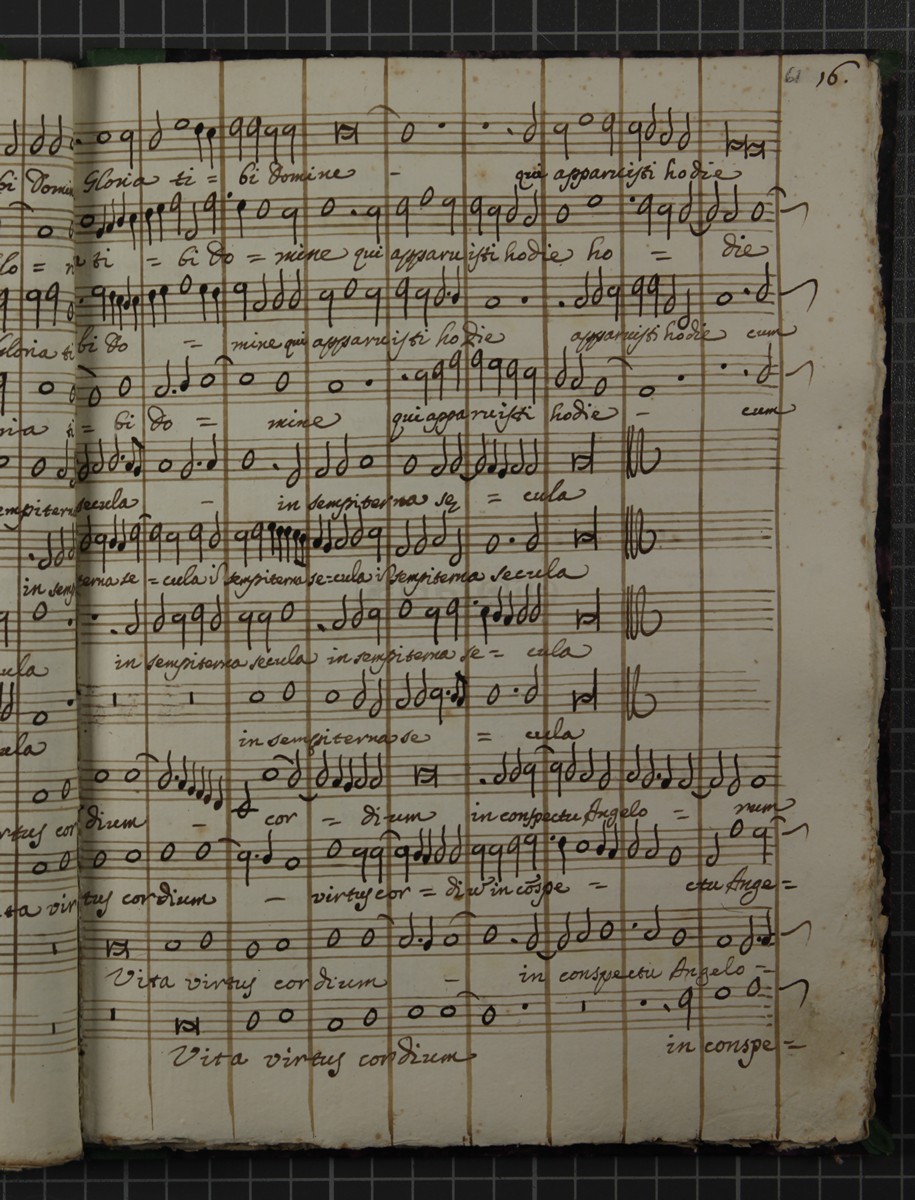 61 16.
bi Domin Gloria ti = bi Domine - qui apparuisti hodie
lo = ti = bi Do = mine qui apparuisti hodie ho = die
Gloria ti bi do = mine qui apparuisti hodie apparuisti hodie cum
ria ti = bi do = mine qui apparuisti hodie - cum
sempitern secula - in sempiterna se = cula
in semp terna se = cula ij sempiterna se=cula ij sempiterna secula
cula in sempiterna secula in sempiterna se = cula
cula in sempiterna se = cula
rtus cor dium - cor = dium in conspectu Angelo = rum
ta vir tus cordium - virtus cor = diũ in cõspe = ctu Ange =
Vita virtus cordium - in conspectu Angelo =
Vita virtus cordium in conspe =